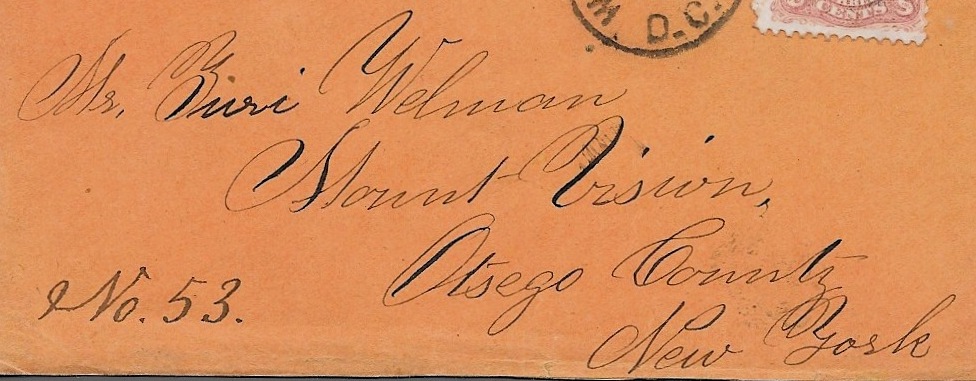 W. D.C.
CENTS
Mr. Ziori Welman
Mount Vision,
Otsego County
New York
No. 53.